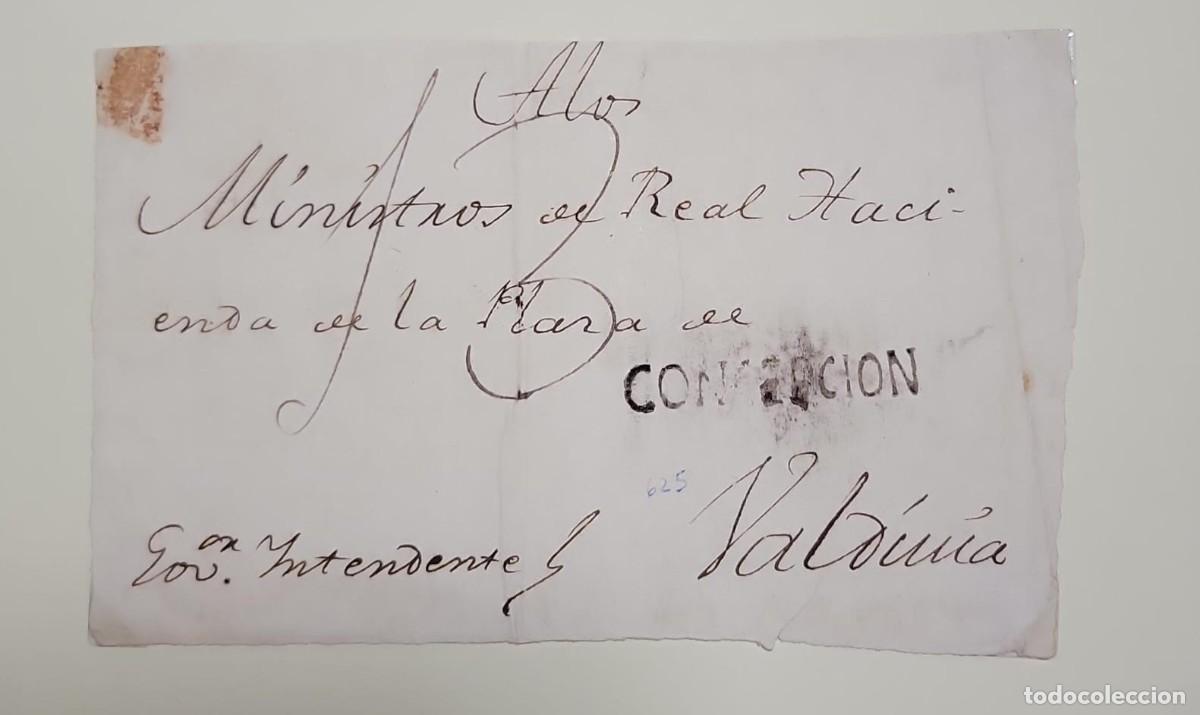 Alos
Ministros de Real Haci-
enda de la Plaza de
CONCEPCION
625
Valdivia
Govor. Intendente
todocoleccion